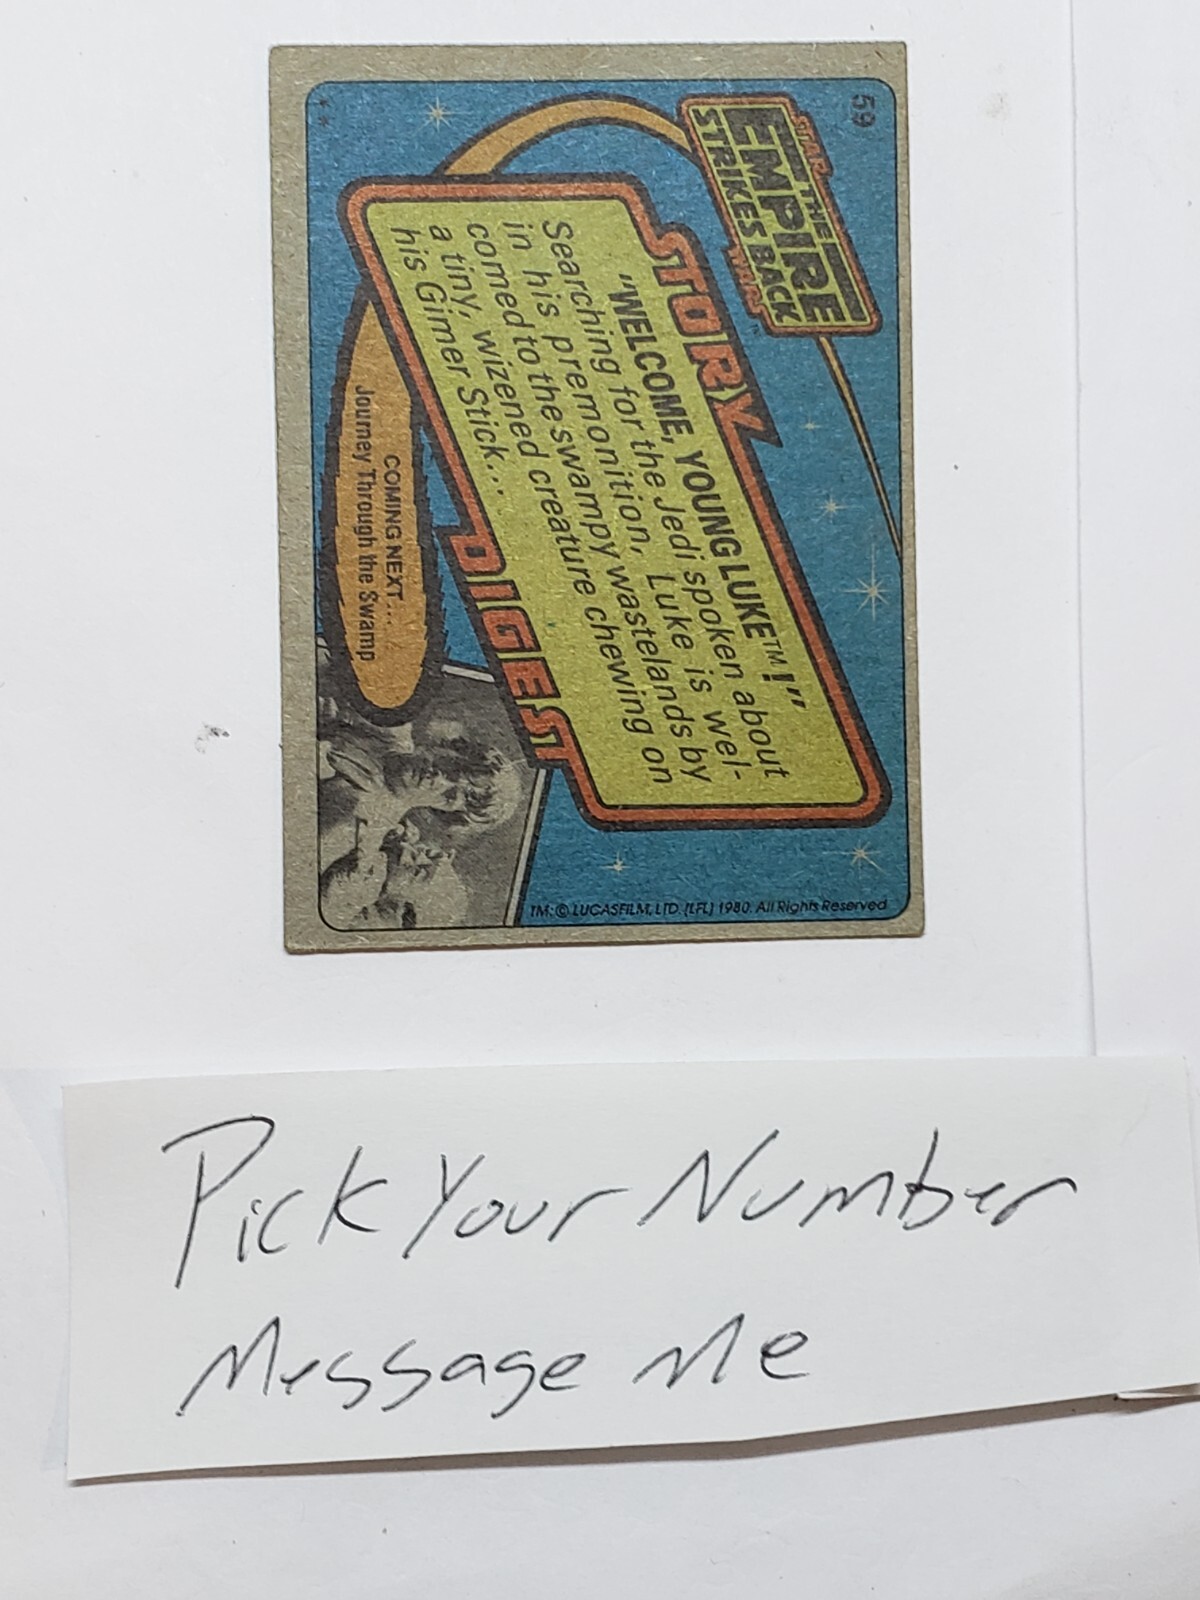 59
STAR
THE
EMPIRE
STRIKES BACK
WARS™
STORY
"WELCOME, YOUNG LUKE™!"
Searching for the Jedi spoken about
in his premonition, Luke is wel-
comed to the swampy wastelands by
a tiny, wizened creature chewing on
his Gimer Stick...
DIGEST
COMING NEXT...
Journey Through the Swamp
TM: © LUCASFILM, LTD. (LFL) 1980. All Rights Reserved
Pick Your Number
Message Me